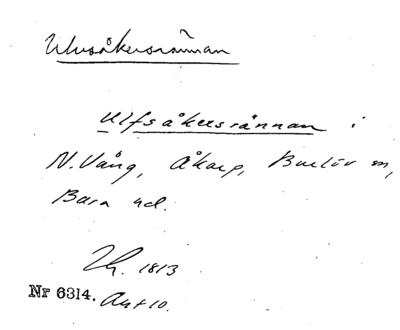 Ulvsåkersrännan
Ulfsåkersrännan i
N. Vång, Åkarp, Burlöv sn,
Bara hd.
1813
Nr 6314. Avt 10.